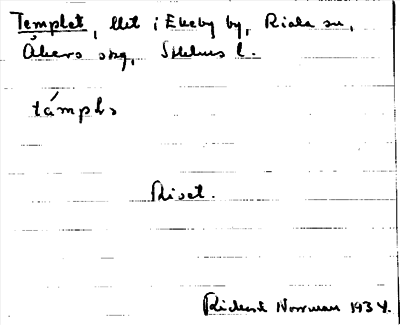 Templet, lht i Ekeby by, Riala sn,
Åkers skg, Sthlms l.
támpls
Rivet.
Rickard Norrman 1934.